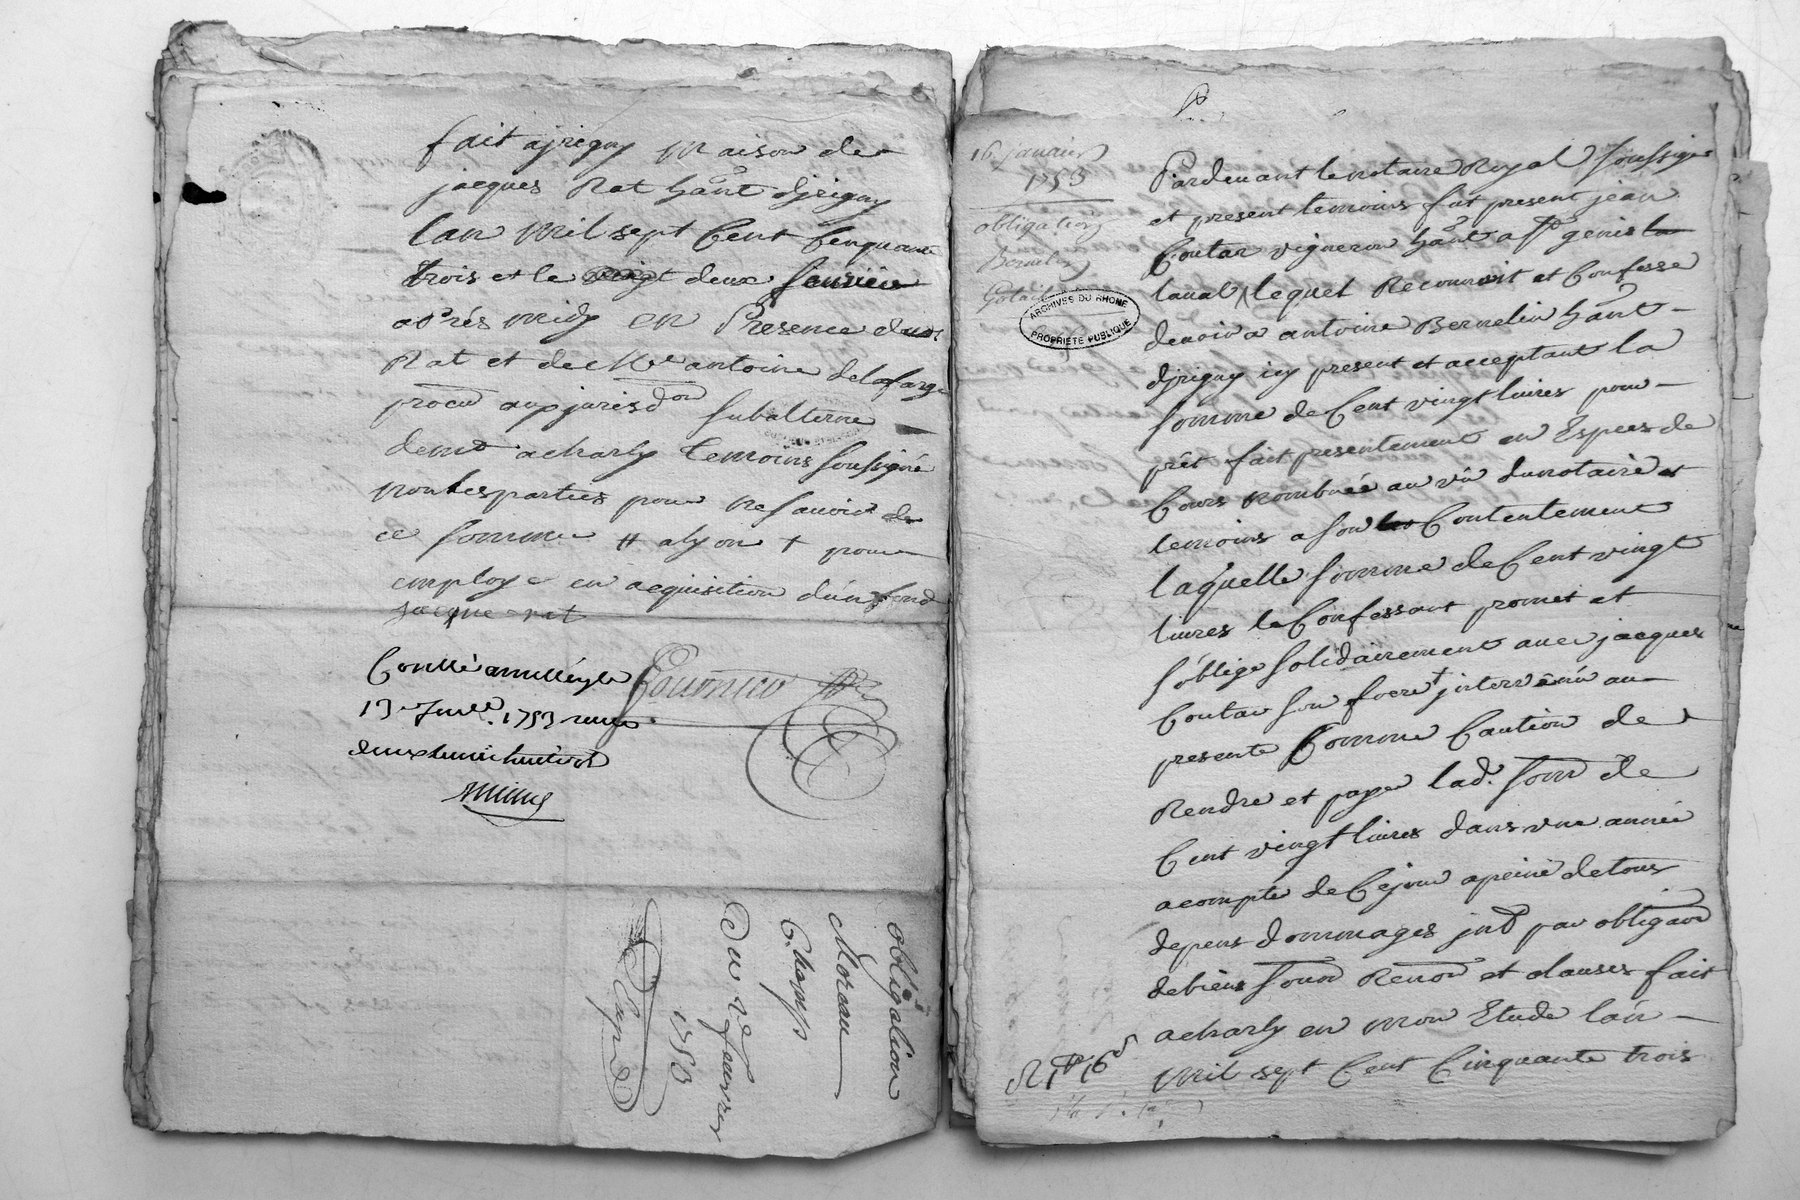 fait a jrigny Maison de
jacques Rat hãnt d'jrigny
lan Mil sept Cent Cenquante
trois et le vingt deux feuvrier
après midy en Presence dud.
Rat et de Me antoine delafarge
procu aux jurisdon Subalterne
demt a charly temoins soussigné
non les parties pour ne sauoir de
ce somme # a lyon + pour
employe en acquisition d'un fond
jacque rat
Fournier
Controllé
13 1753
deux livres huit sols
obligation
Moreau
Champs
Du 22e feuvrier
1753
Exped
16 januier
1753
obligation
Bernelin
Coutar
ARCHIVES DU RHONE
PROPRIETE PUBLIQUE
Pardeuant le notaire Royal soussigné
et present temoins fut present jean
Coutar vigneron hãnt a St genis
laual lequel Reconnoit et Confesse
deuoir a antoine Bernelin hãnt
d'jrigny icy present et acceptant la
somme de Cent vingt liures pour
prêt fait presentement en Espees de
Cours nombrée au vû du notaire et
temoins a son Contentement
laquelle somme de Cent vingt
liures le Confessant promet et
s'oblige solidairement auec jacques
Coutar son frere + jnterv énu au
presente Comme Caution de
Rendre et payer lad. somme de
Cent vingt liures dans une année
a compte de Cejour a peine de tous
depens dommages jnt par obligaon
de biens soum Renon et clauses fait
a charly en mon Etude lan
Mil sept Cent Cinquante trois